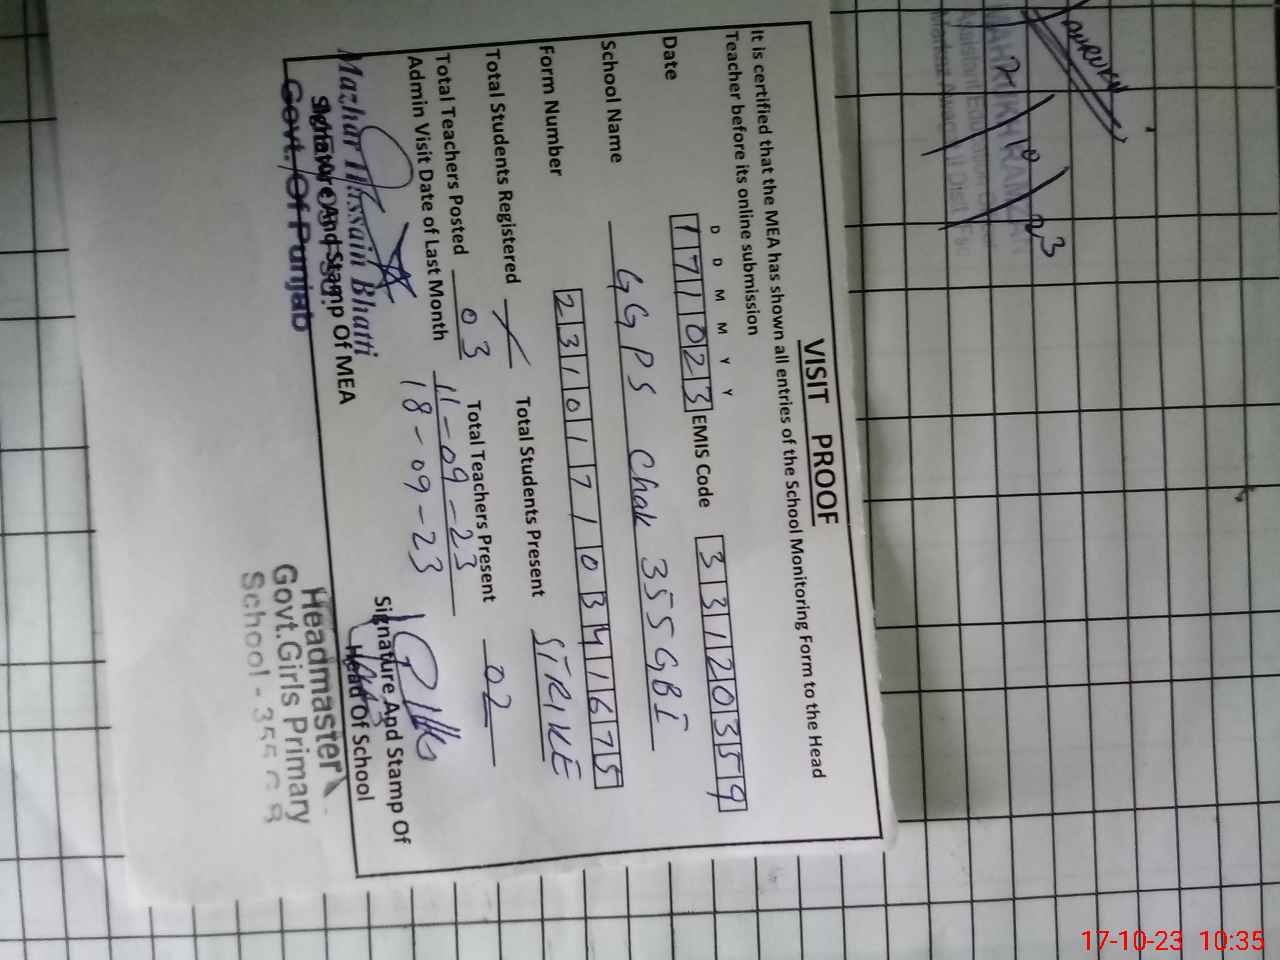 VISIT PROOF
It is certified that the MEA has shown all entries of the School Monitoring Form to the Head
Teacher before its online submission
D D M M Y Y
Date 171023 EMIS Code 33120359
School Name GGPS Chak 355GBI
Form Number 23101710341675
Total Students Registered Total Students Present STRIKE
Total Teachers Posted 03 Total Teachers Present 02
Admin Visit Date of Last Month 11-09-23
18-09-23
Mazhar Hussain Bhatti
Signature And Stamp Of MEA
Govt. Of Punjab
Signature And Stamp Of
Head Of School
Headmaster
Govt.Girls Primary
School - 355 G B
17-10-23 10:35